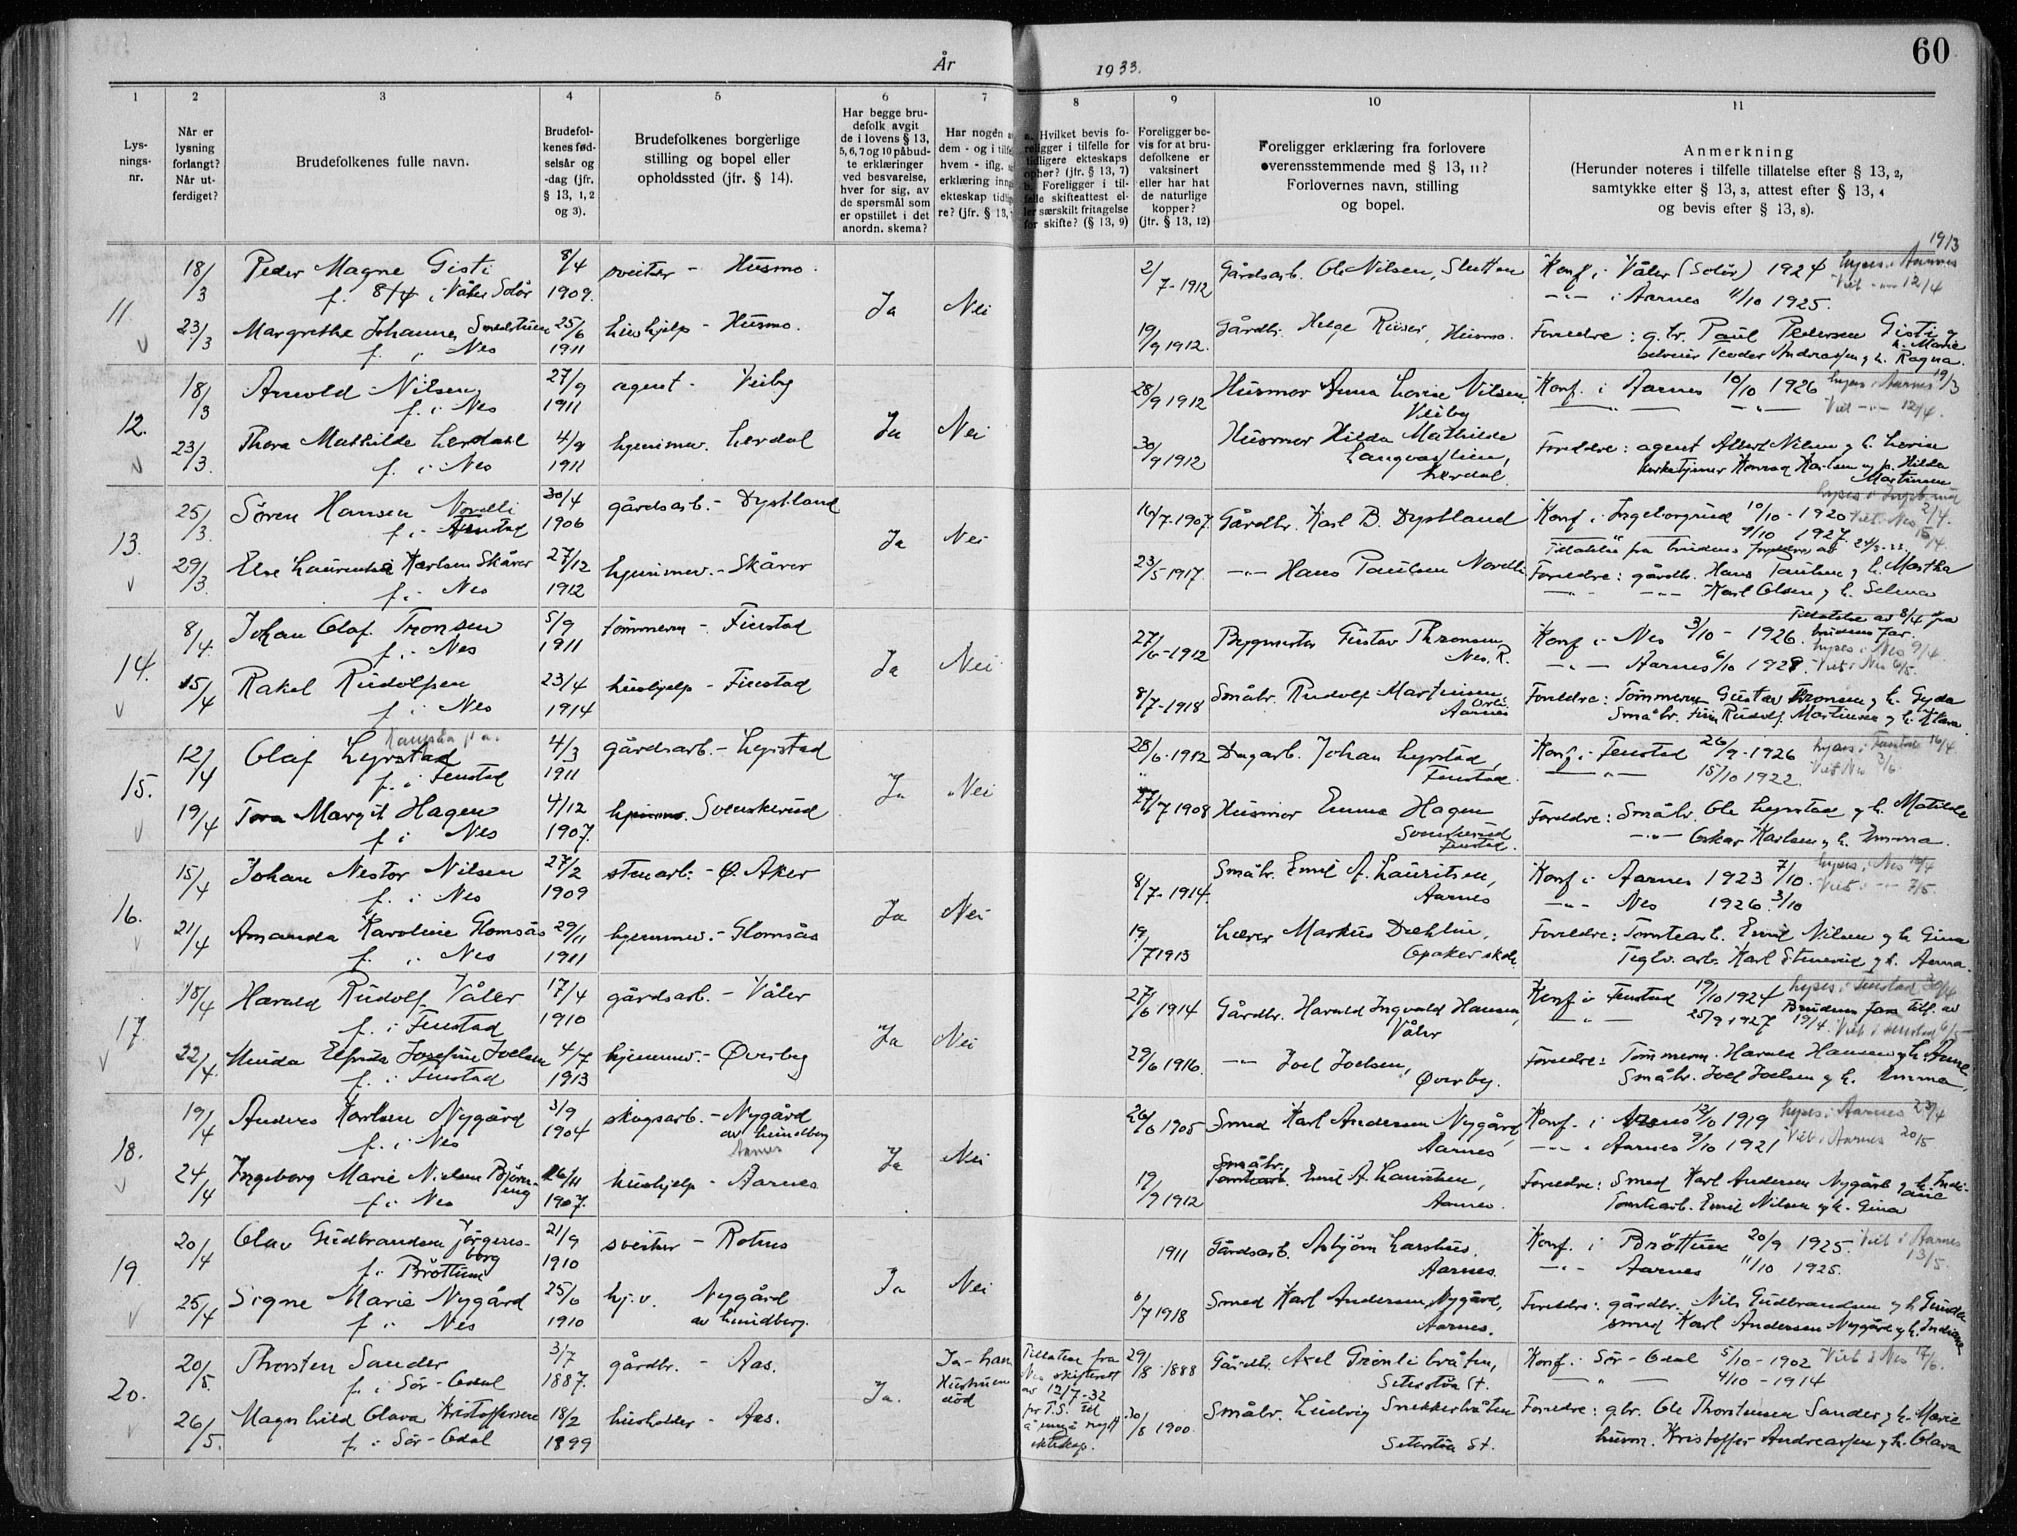 60
År 1933.
1 2 3 4 5 6 7 8 9 10 11
Lysnings-nr.
Når er lysning forlangt? Når utferdiget?
Brudefolkenes fulle navn.
Brudefolkenes fødselsår og -dag (jfr. § 13, 1, 2 og 3).
Brudefolkenes borgerlige stilling og bopel eller opholdssted (jfr. § 14).
Har begge brudefolk avgit de i lovens § 13, 5, 6, 7 og 10 påbudte erklæringer ved besvarelse, hver for sig, av de spørsmål som er opstillet i det anordn. skema?
Har nogen
dem - og i tilfe
hvem - iflg.
erklæring inng
ekteskap tidlig
re? (jfr. § 13,
a. Hvilket bevis foreligger i tilfelle for tidligere ekteskaps ophør? (jfr. § 13, 7)
b. Foreligger i tilfelle skifteattest eller særskilt fritagelse for skifte? (§ 13, 9)
Foreligger bevis for at brudefolkene er vaksinert eller har hat de naturlige kopper? (jfr. § 13, 12)
Foreligger erklæring fra forlovere overensstemmende med § 13, 11? Forlovernes navn, stilling og bopel.
Anmerkning
(Herunder noteres i tilfelle tillatelse efter § 13, 2, samtykke efter § 13, 3, attest efter § 13, 4 og bevis efter § 13, 8).
11.
18/3 Peder Magne Gisti 8/4 sveitser - Husmo.
f. 8/4 i Våler Solør 1909.
Ja Nei
2/7-1912 Gårdsarb. Ole Nilsen, Sletten
Konf. i Våler (Solør) 1924 lyses i Aarnes 19/3
-"- i Aarnes 11/10 1925. Viet -"- 12/4
23/3 Margrethe Johanne Smedstuen 25/6 hushjelp - Husmo.
f. i Nes 1911
19/9 1912. Gårdbr. Helge Riiser, Husmo.
Foreldre: g.br. Paul Pedersen Gisti og h. Marie
Peder Andreassen og h. Ragna.
12.
18/3 Arnold Nilsen 27/9 agent - Veiby
f. i Nes 1911
Ja Nei
28/9 1912 Husmor Anna Lovise Nilsen
Veiby
Konf. i Aarnes 10/10 1926 lyses i Aarnes 19/3
Viet -"- 12/4.
23/3. Thora Mathilde Lerdahl 4/9 hjemmev. Lerdal
f. i Nes 1911
30/9 1912 Husmor Hilda Mathilde
Langvasslien,
Lerdal.
Foreldre: agent Albert Nilsen og h. Lovise
kirketjener Konrad Karlsen og h. Hilda
Martinsen
13.
25/3. Søren Hansen Nordli 30/4 gårdsarb. - Dystland
f. i Fenstad 1906
Ja Nei
16/7-1907. Gårdbr. Karl B. Dystland
Konf. i Ingeborgrud 10/10-1920 lyses i Ingeb.rud 2/4.
9/10 1927. Viet i Nes 15/4.
Tillatelse fra brudens foreldre av 24/3-33.
29/3. Else Laurentse Karlsen Skårer 27/12 hjemmev. - Skårer
f. i Nes 1912
23/5 1917. -"- Hans Paulsen Nordli
Foreldre: gårdbr. Hans Paulsen og h. Martha
-"- -"- Karl Olsen og h. Selma
14.
8/4. Johan Olaf Tronsen 5/9 tømmerm - Finstad
f. i Nes 1911
Ja Nei
27/6-1912 Byggmester Gustav Thronsen
Nes. R.
Tillatelse av 8/4 fra brudens far.
Konf. i Nes 3/10 - 1926. lyses i Nes 9/4.
-"- Aarnes 6/10 1928. Viet i Nes 6/5.
15/4 Rakel Rudolfsen 23/4 hushjelp - Finstad
f. i Nes 1914
8/7-1918 Småbr. Rudolf Martinsen,
Aarnes
Foreldre: Tømmerm Gustav Tronsen og h. Gyda
Småbr. Rudolf Martinsen og h. Klara
15.
12/4 Olaf Lyrstad 4/3 gårdsarb. - Lyrstad
f. i Fenstad 1911
Ja Nei
28/6-1912 Dagarb. Johan Lyrstad,
Fenstad.
Konf. i Fenstad 26/9-1926 lyses i Fenstad 16/4
-"- 15/10 1922. Viet Nes 3/6.
19/4 Tora Margit Hagen 4/12 hjemmev. Svenskerud
f. i Nes 1907.
27/7 1908 Husmor Emma Hagen
Svenskerud
Fenstad.
Foreldre: Småbr. Ole Lyrstad og h. Matilde
-"- Oskar Karlsen og h. Emma.
16.
15/4 Johan Nestor Nilsen 27/2 stenarb. - Ø. Aker
f. i Nes 1909
Ja Nei
8/7-1914. Småbr. Emil A. Lauritsen,
Aarnes
Konf. i Aarnes 1923 7/10. lyses i Nes 16/4
-"- Nes 1926. 3/10 Viet -"- 7/5.
21/4 Amanda Karoline Glomsås 29/11 hjemmev. - Glomsås
f. i Nes 1911
19/7 1913 Lærer Markus Dæhlin,
Opaker skole
Foreldre: Tomtearb. Emil Nilsen og h. Gina
Teglv. arb. Karl Stenerud og h. Anna.
17.
18/4 Harald Rudolf Våler 17/4 gårdsarb. - Våler
f. i Fenstad 1910
Ja Nei
27/6 1914 Gårdbr. Harald Ingvald Hansen,
Våler
Konf. i Fenstad 19/10 1924 lyses i Fenstad 30/4
-"- 25/9 1927 Brudens fars till. av
19/4. Viet i Fenstad 6/5
22/4. Minda Elfrida Josefine Joelsen 4/7 hjemmev. - Øverby
f. i Fenstad 1913
29/6 1916. -"- Joel Joelsen,
Øverby.
Foreldre: Tømmerm. Harald Hansen og h. Anna
Småbr. Joel Joelsen og h. Emma,
18.
19/4 Anders Karlsen Nygård 3/9 skogsarb. - Nygård
f. i Nes 1904 av Lundberg
Aarnes
Ja Nei
26/6 1905 Smed Karl Andersen Nygård,
Aarnes
Konf. i Aarnes 12/10 1919 lyses i Aarnes 23/4
-"- i Aarnes 9/10 1921 Viet i Aarnes 20/5
24/4 Ingeborg Marie Nielsen 26/11 hushjelp - Aarnes
f. i Nes 1907.
19/9 1912 Småbr. Emil A. Lauritsen,
Aarnes.
Foreldre: Smed Karl Andersen Nygård og h. Indiane
Tomtearb. Emil Nilsen og h. Gina
19.
20/4 Olav Gudbrandsen Jørgensborg 21/9 sveitser - Rotnes
f. i Brøttum 1910
Ja Nei
1911 Gårdsarb. Asbjørn Larshus.
Aarnes.
Konf. i Brøttum 20/9 1925. Viet i Aarnes
-"- Aarnes 11/10 1925. 13/5.
25/4 Signe Marie Nygård 25/6 hj.v. Nygård
f. i Nes 1910 av Lundberg.
6/7 1918 Smed Karl Andersen Nygård,
Aarnes.
Foreldre: gårdbr. Nils Gudbrandsen og h. Gunda
smed Karl Andersen Nygård og h. Indiana
20.
20/5. Thorsten Sander 3/7 gårdbr. - Aas.
f. i Sør-Odal 1887.
Ja. Ja - han
Hustruen
død
Tillatelse fra
Nes skifterett
av 12/7-32
for T.S. til
å inngå nytt
ekteskap.
29/8-1888 Gårdbr. Axel Grønlibråten,
Seterstøa St.
Konf. i Sør-Odal 5/10-1902 Viet i Nes 17/6.
-"- 4/10-1914
26/5. Magnhild Olava Kristoffersen 18/2 husholder - Aas.
f. i Sør-Odal 1899
30/8 1900. Småbr. Ludvig Snekkerbråten
Seterstøa St.
Foreldre: gbr. Ole Thorstensen Sander og h. Marie
husm. Kristoffer Andreassen og h. Olava